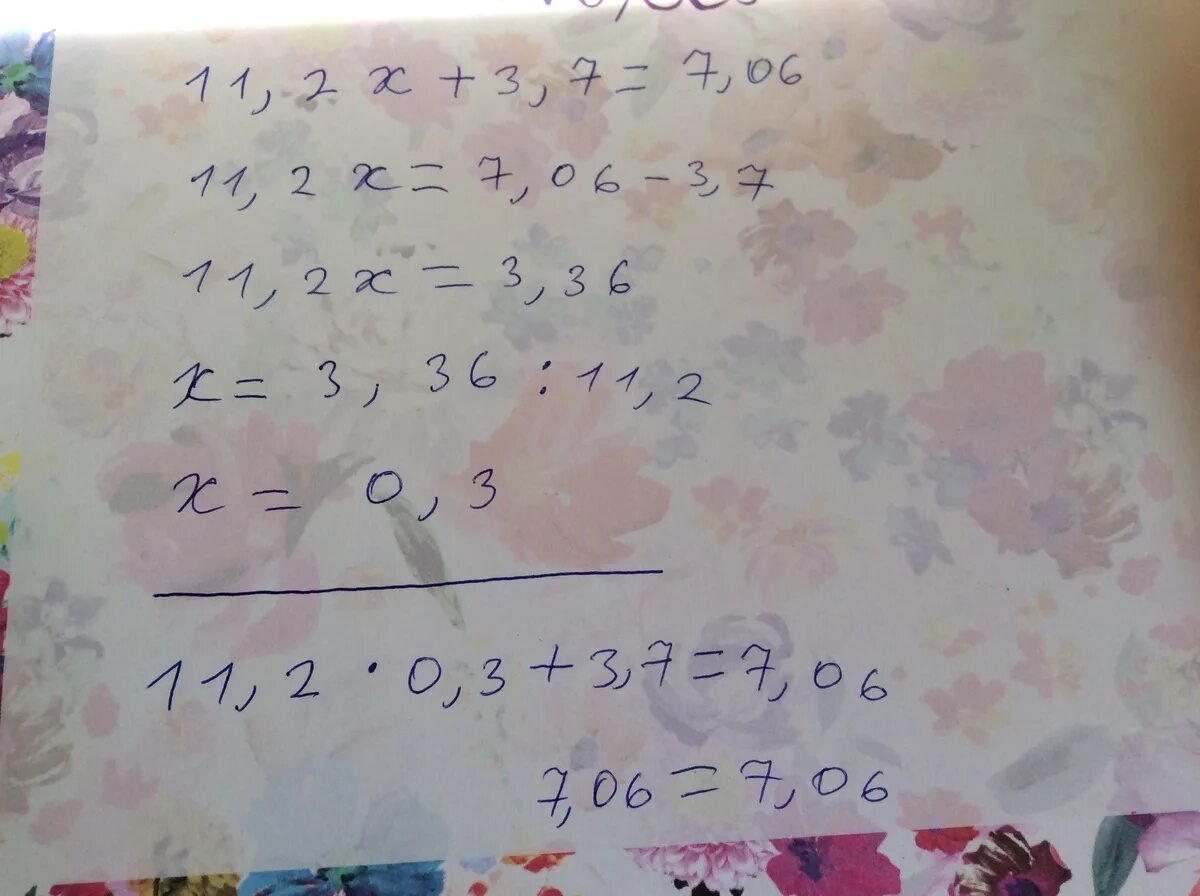 11,2x+3,7=7,06
11,2x=7,06-3,7
11,2x=3,36
x=3,36:11,2
x=0,3
11,2·0,3+3,7=7,06
7,06=7,06